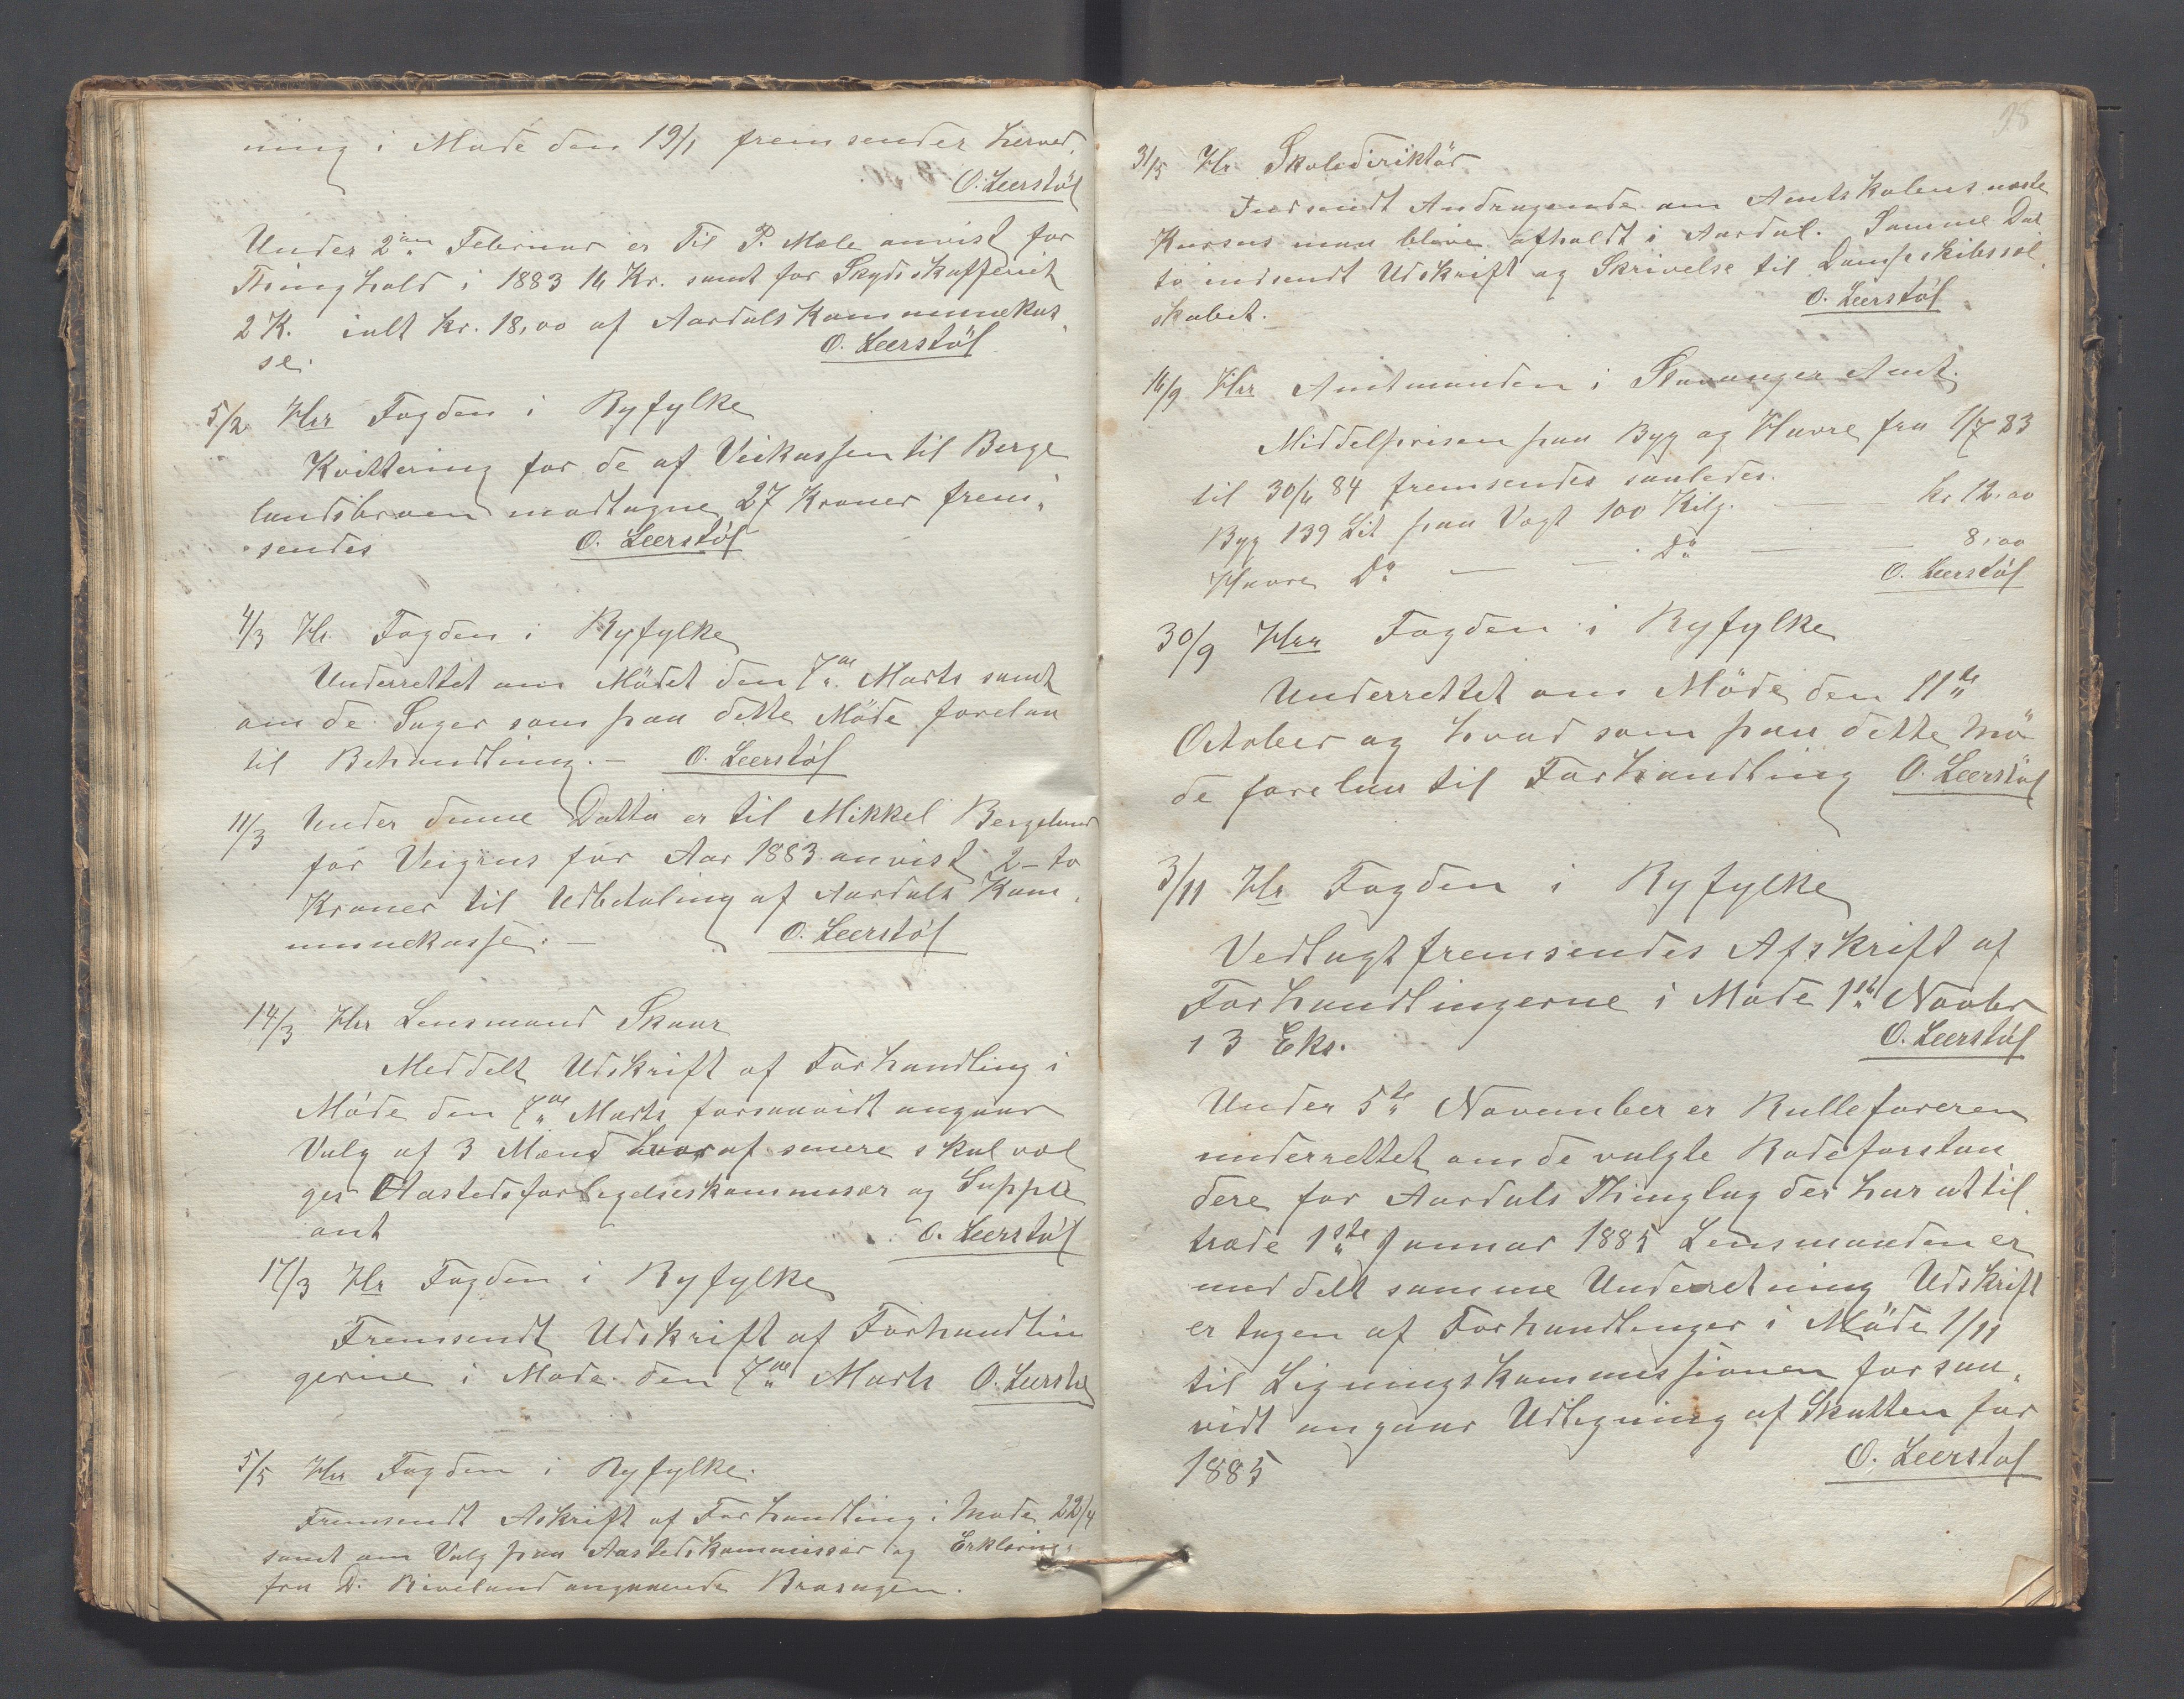 ning i Møde den 19/1 fremsender herved.
O. Leerstöl
Under 2den Februar er til P. Mæle anvist for
Thinghold i 1883 16 Kr. samt for Skydsskafferiet
2 K. ialt kr. 18,00 af Aardals Kommunekas
se.
O. Leerstöl
5/2 Hrr Fogden i Ryfylke
Kvittering for de af Veikassen til Berge
landsbroen modtagne 27 Kroner frem-
sendes O. Leerstöl
4/3 Hr. Fogden i Ryfylke
Underrettet om Mödet den 7de Marts samt
om de Sager som paa dette Möde forelaa
til Behandling. – O. Leerstöl
11/3 Under denne Datto er til Mikkel Bergeland
for Veigrus for Aar 1883 anvist 2 – to
Kroner til Udbetaling af Aardals Kom
munekasse. – O. Leerstöl
14/3 Hrr Lensmand Skaar
Meddelt Udskrift af Forhandling i
Möde den 7de Marts forsaavidt angaar
Valg af 3 Mænd hvoraf senere skal væl
ges Aastedsforligelseskommisær og Supple
ant O. Leerstöl
17/3 Hr Fogden i Ryfylke
Fremsendt Udskrift af Forhandlin
gerne i Møde den 7de Marts O. Leerstöl
5/5 Hrr Fogden i Ryfylke.
Fremsendt Askrift af Forhandling i Møde 22/4
samt om Valg paa Aastedskommissær og Erklæring
fra D. Riveland angaaende Brosagen.
98
31/5 Hr. Skoledirektör
Indsendt Andragende om Amtskolens næste
Kursus maa blive afholdt i Aardal. Samme Dat
to indsendt Udskrift og Skrivelse til Dampskibssel
skabet. O. Leerstöl
16/9 Hrr Amtmanden i Stavanger Amt.
Middelprisen paa Byg og Havre fra 1/7 83
til 30/6 84 fremsendes saaledes.
Byg 139 Lit paa Vægt 100 Kilg. — kr 12,00
Havre Do — — Do — — 8,00
O. Leerstöl
30/9 Hrr Fogden i Ryfylke
Underrettet om Möde den 11te
October og hvad som paa dette Mö
de forelaa til Forhandling O. Leerstöl
3/11 Hr Fogden i Ryfylke
Vedlagt fremsendes Afskrift af
Forhandlingerne i Møde 1ste Novbr
i 3 Eks. O. Leerstöl
Under 5te November er Rulleføreren
underrettet om de valgte Rodeforstan
dere for Aardals Thinglag der har at til
træde 1ste Januar 1885 Lensmanden er
meddelt samme Underretning Udskrift
er tagen af Forhandlinger i Möde 1/11
til Ligningskommissionen forsaa
vidt angaar Udligning af Skatten for
1885 O. Leerstöl